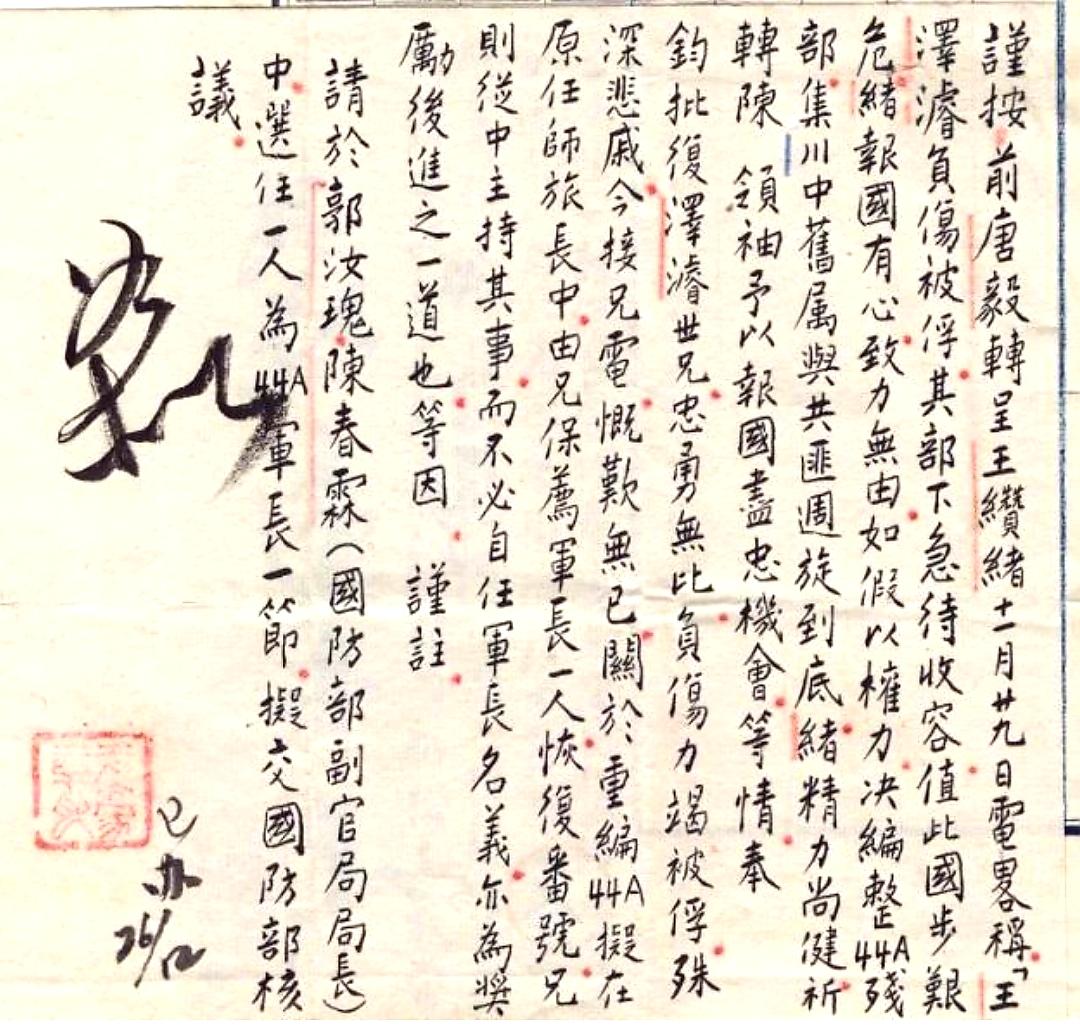 謹按前唐毅轉呈王纘緒十一月廿九日電畧稱「王
澤濬負傷被俘其部下急待收容值此國步艱
危緒報國有心致力無由如假以權力決編整44A殘
部集川中舊属與共匪週旋到底緒精力尚健祈
轉陳 領袖予以報國盡忠機會等情奉
鈞批復澤濬世兄忠勇無比負傷力竭被俘殊
深悲戚今接兄電慨歎無已關於重編44A擬在
原任師旅長中由兄保薦軍長一人恢復番號兄
則從中主持其事而不必自任軍長名義亦為奬
勵後進之一道也等因 謹註
請於郭汝瑰陳春霖(國防部副官局局長)
中選任一人為44A軍長一節擬交國防部核
議
已办
26/12